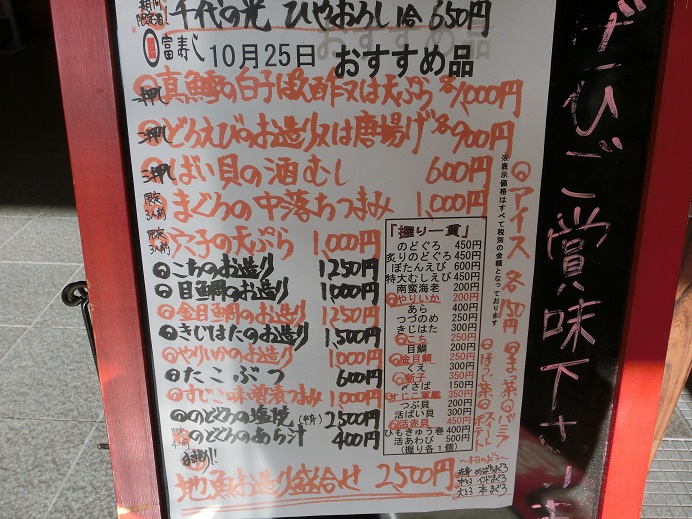 期間限定酒! 千代の光 ひやおろし 1合 650円
富寿し 10月25日 おすすめ品
一押し 真鱈の白子ぽん酢又は天ぷら 各1,000円
一押し どろえびのお造り又は唐揚げ 各900円
一押し ばい貝の酒むし 600円
限定3人前 まぐろの中落ちつまみ 1,000円
限定3人前 穴子の天ぷら 1,000円
こちのお造り 1250円
目鯛のお造り 1000円
金目鯛のお造り 1250円
きじはたのお造り 1,500円
やりいかのお造り 1000円
たこぶつ 600円
すじこ味噌漬つまみ 1000円
のどぐろの塩焼(半身) 2,500円
のどぐろのあら汁 400円
お得!!
地魚お造り盛合せ 2,500円
「握り一貫」
のどぐろ 450円
炙りのどぐろ 450円
ぼたんえび 600円
特大むしえび 450円
南蛮海老 200円
やりいか 200円
あら 400円
つづのめ 250円
きじはた 300円
こち 250円
目鯛 200円
金目鯛 250円
くえ 300円
新子 350円
〆さば 150円
すじこ軍艦 350円
つぶ貝 200円
活ばい貝 300円
活赤貝 450円
ひもきゅう巻 400円
活あわび 500円
(握り各1個)
※表示価格はすべて税別の金額となっております
アイス 各150円
バニラ
ま茶
ほうじ茶
～本日のまぐろ～
赤身 めばちまぐろ
中とろ インドまぐろ
大とろ 本まぐろ
ぜひご賞味下さい